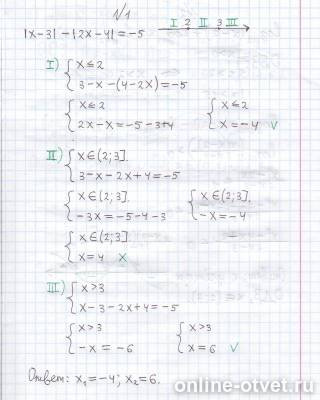 N1
|x-3|-|2x-4|=-5 I 2 II 3 III
I) { x≤2
3-x-(4-2x)=-5
{ x≤2 { x≤2
2x-x=-5-3+4 x=-4 V
II) { x∈(2;3].
3-x-2x+4=-5
{ x∈(2;3]. { x∈(2;3].
-3x=-5-4-3 -x=-4
{ x∈(2;3]
x=4 X
III) { x>3
x-3-2x+4=-5
{ x>3 { x>3
-x=-6 x=6 V
Ответ: x₁=-4; x₂=6.
online-otvet.ru